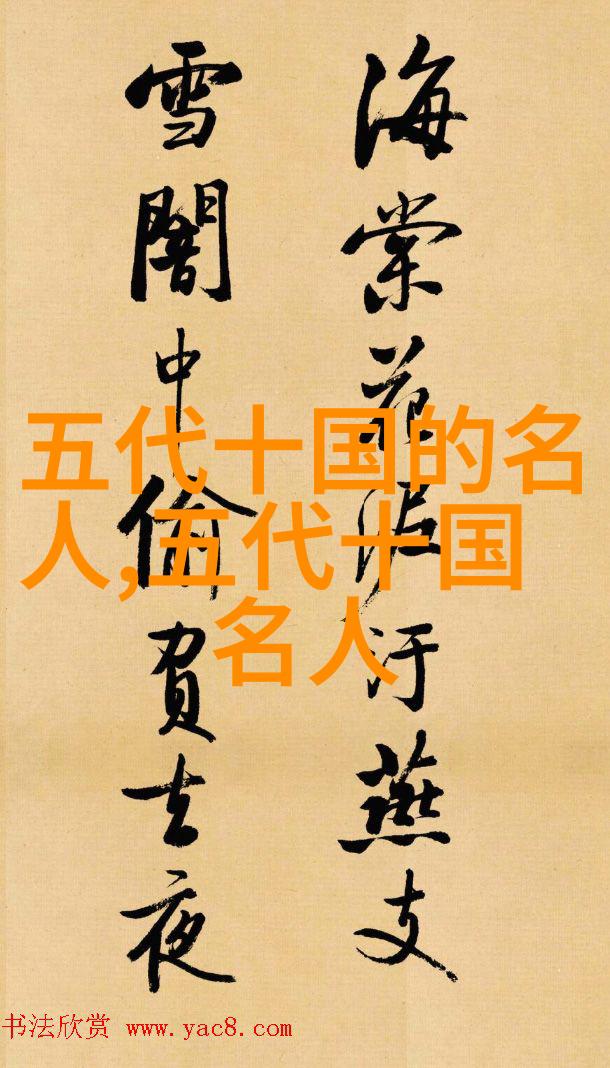 海棠花泥汙燕支
雪闇中偷負去夜
五代十国的名
人,五代十国
名人
书法欣赏 www.yac8.com